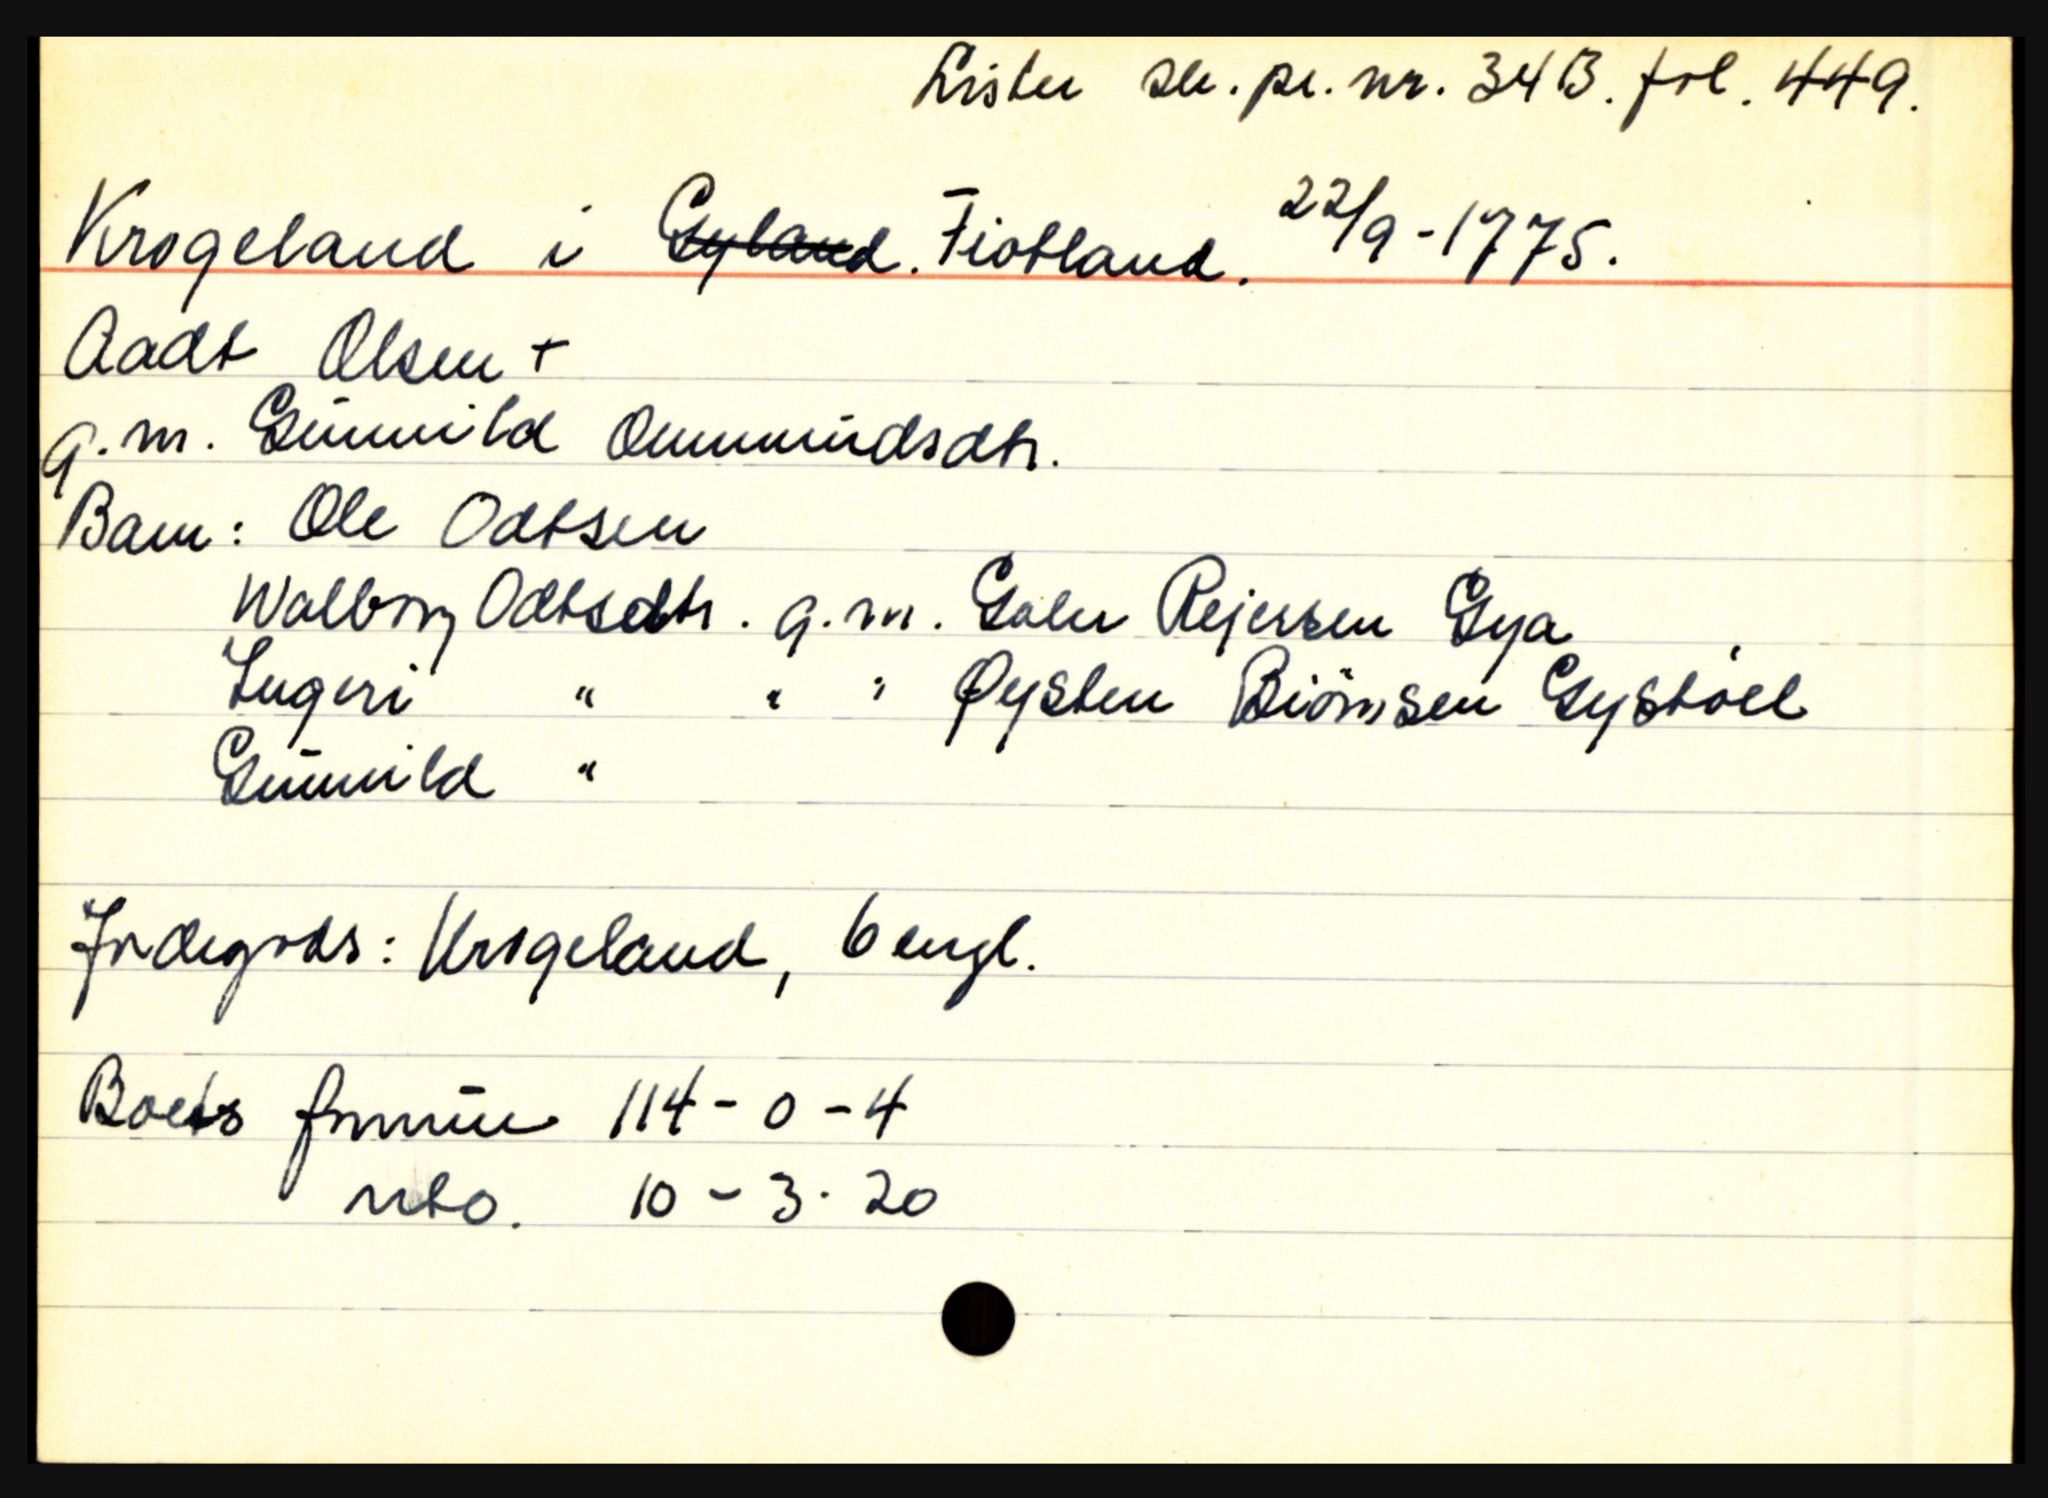 Lister sk. pr. nr. 34B. fol. 449.
Krogeland i Gyland. Fiotland. 22/9-1775.
Aadt Olsen +
g.m. Gŭnnild Ommŭndsdtr.
Barn: Ole Odtsen
Walborg Odtsdtr. g.m. Galer Rejersen Gya
Ingeri " " " Øysten Biörnsen Gystöel
Gŭnnild "
Jordegods: Krogeland, 6 engl.
Boets formŭe 114-0-4
nto. 10-3-20